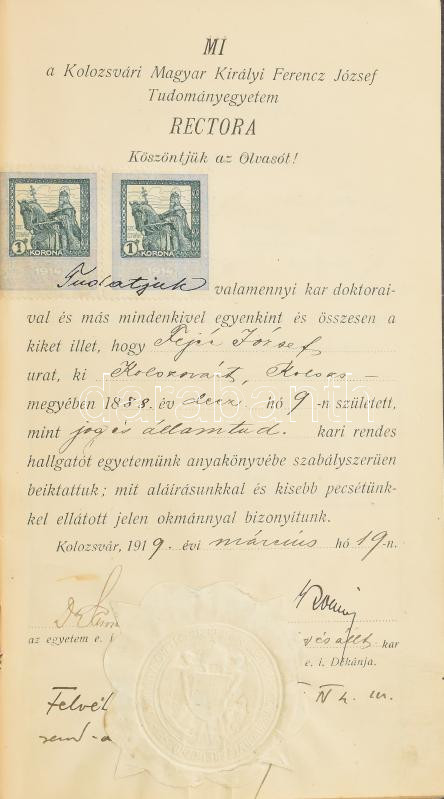 MI
a Kolozsvári Magyar Királyi Ferencz József
Tudományegyetem
RECTORA
Köszöntjük az Olvasót!
1 KORONA 1 KORONA
1914 1914
Tudatjuk valamennyi kar doktorai-
val és más mindenkivel egyenkint és összesen a
kiket illet, hogy Fejér József
urat, ki Kolozsvárt, Kolozs-
megyében 1888. év decz. hó 9-n született,
mint jog és államtud. kari rendes
hallgatót egyetemünk anyakönyvébe szabályszerüen
beiktattuk; mit aláírásunkkal és kisebb pecsétünk-
kel ellátott jelen okmánnyal bizonyítunk.
Kolozsvár, 1919. évi március hó 19-n.
az egyetem e. i. és állt. kar
e. i. Dékánja.
darabanth